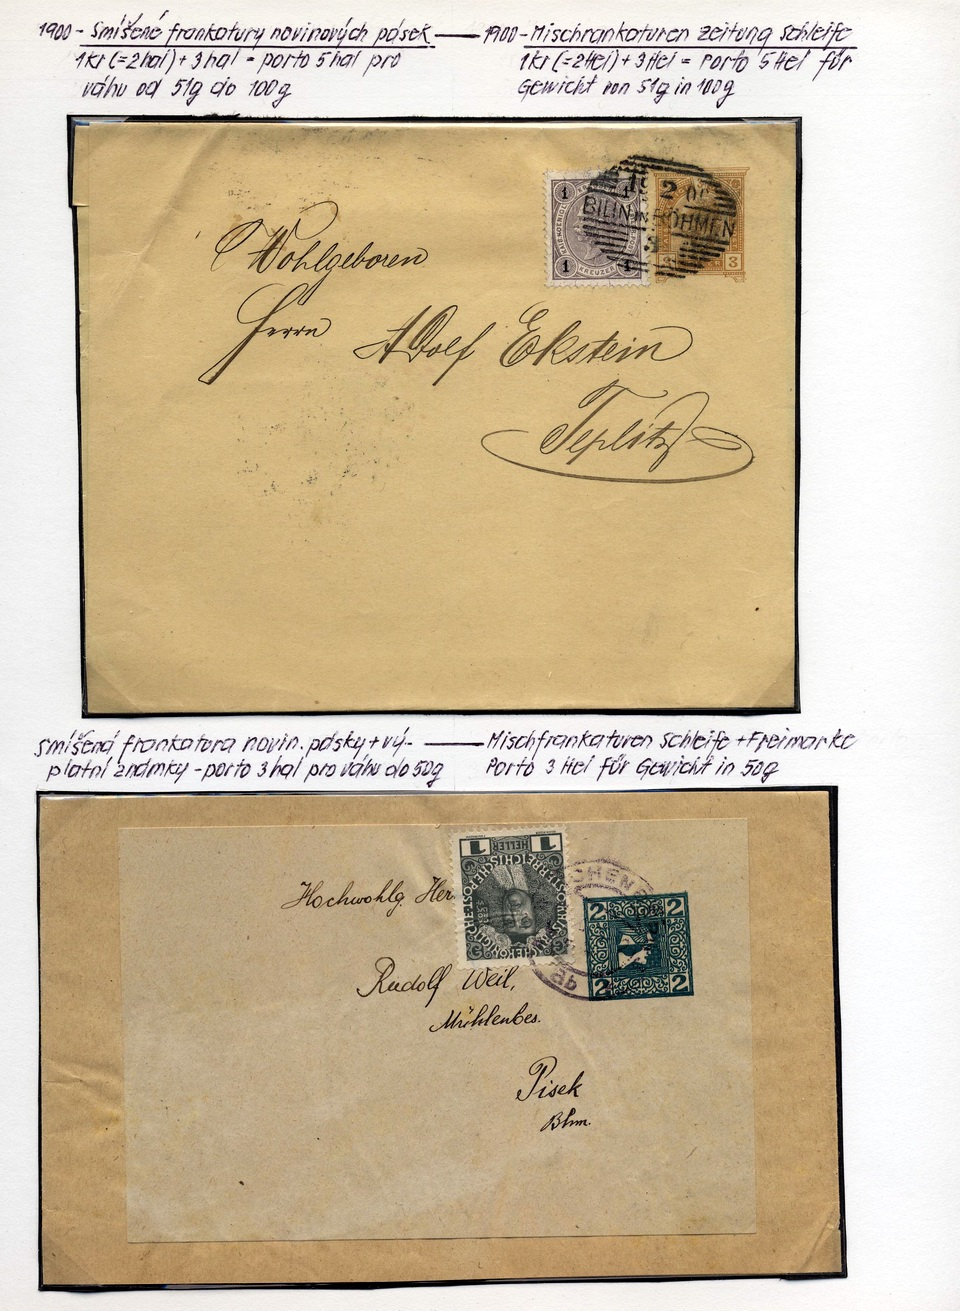 1900 - Smíšené frankatury novinových pásek — 1900 - Mischrankaturen Zeitung Schleife
1kr (=2hal) + 3hal = porto 5hal pro
váhu od 51g do 100g
1kr (=2Hel) + 3Hel = Porto 5Hel für
Gewicht von 51g in 100g
1 1
KREUZER
1 1
19 2 00
BILIN IN BÖHMEN
3
3 3
Wohlgeboren
Herrn Adolf Ekstein
Teplitz
Smíšená frankatura novin. pásky + vý- — Mischfrankaturen Schleife + Freimarke
platní známky - porto 3hal pro váhu do 50g
Porto 3 Hel für Gewicht in 50g
1 HELLER 1
2 2
2 2
ab
Hochwohlg. Her
Rudolf Weil,
Mühlenbes.
Pisek
Bhm.